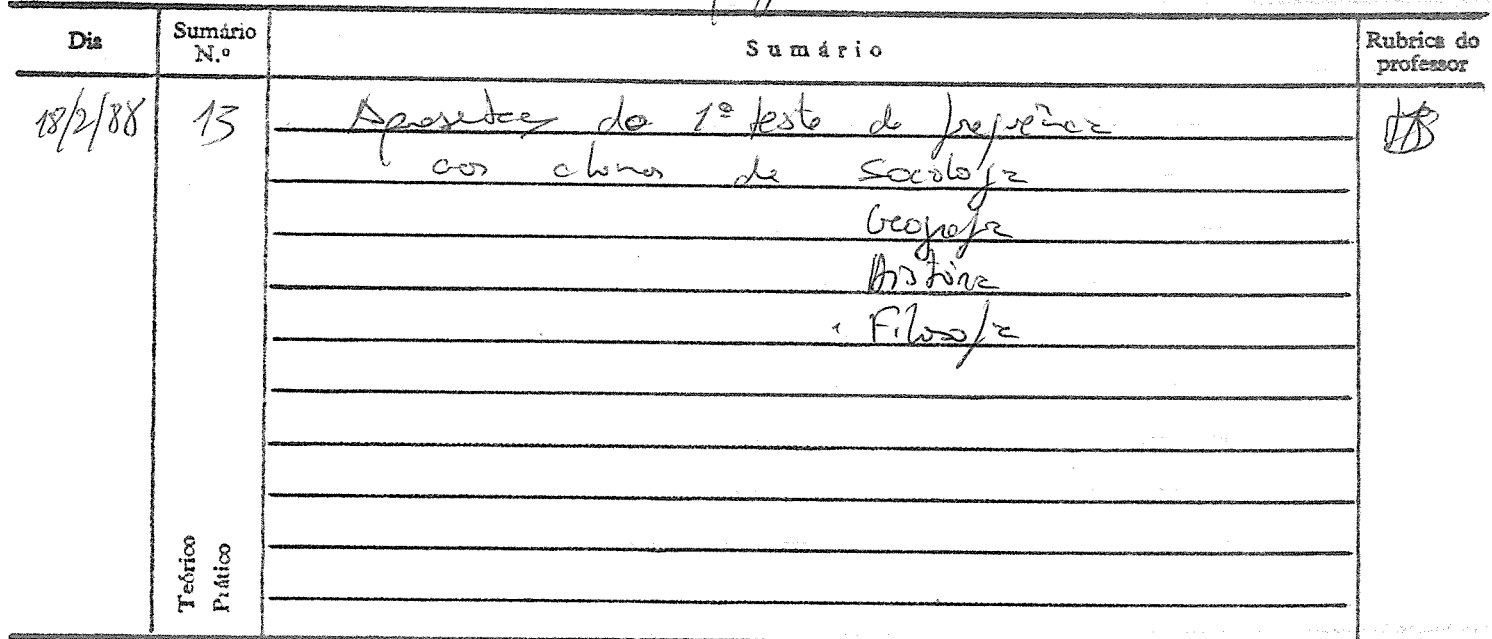 Dia
Sumário N.º
Sumário
Rubrica do professor
18/2/88
13
Apresentação do 1º teste de frequência
aos alunos de Sociologia
Geografia
História
Filosofia
Teórico
Prático